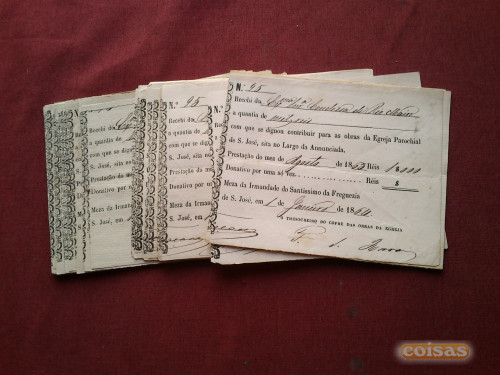 N.º 25
Recebi da Exma Snra Condessa de Rio Maior
a quantia de mil reis
com que se dignou contribuir para as obras da Egreja Parochial
de S. José, sita no Largo da Annunciada.
Prestação do mez de Agosto de 1863 Réis 1000
Donativo por uma só vez Réis $
Meza da Irmandade do Santissimo da Freguezia
de S. José, em 1 de Janeiro de 1864
O THESOUREIRO DO COFRE DAS OBRAS DA EGREJA
N.º 25
Recebi da
a quantia
com que se
de S. José,
Prestação
Donativo
Meza da Irm
de S. José, em
Recebi da
a quantia de
com que se
de S. José, sita
Prestação do
Donativo por
Meza da Irman
de S. José, em
coisas